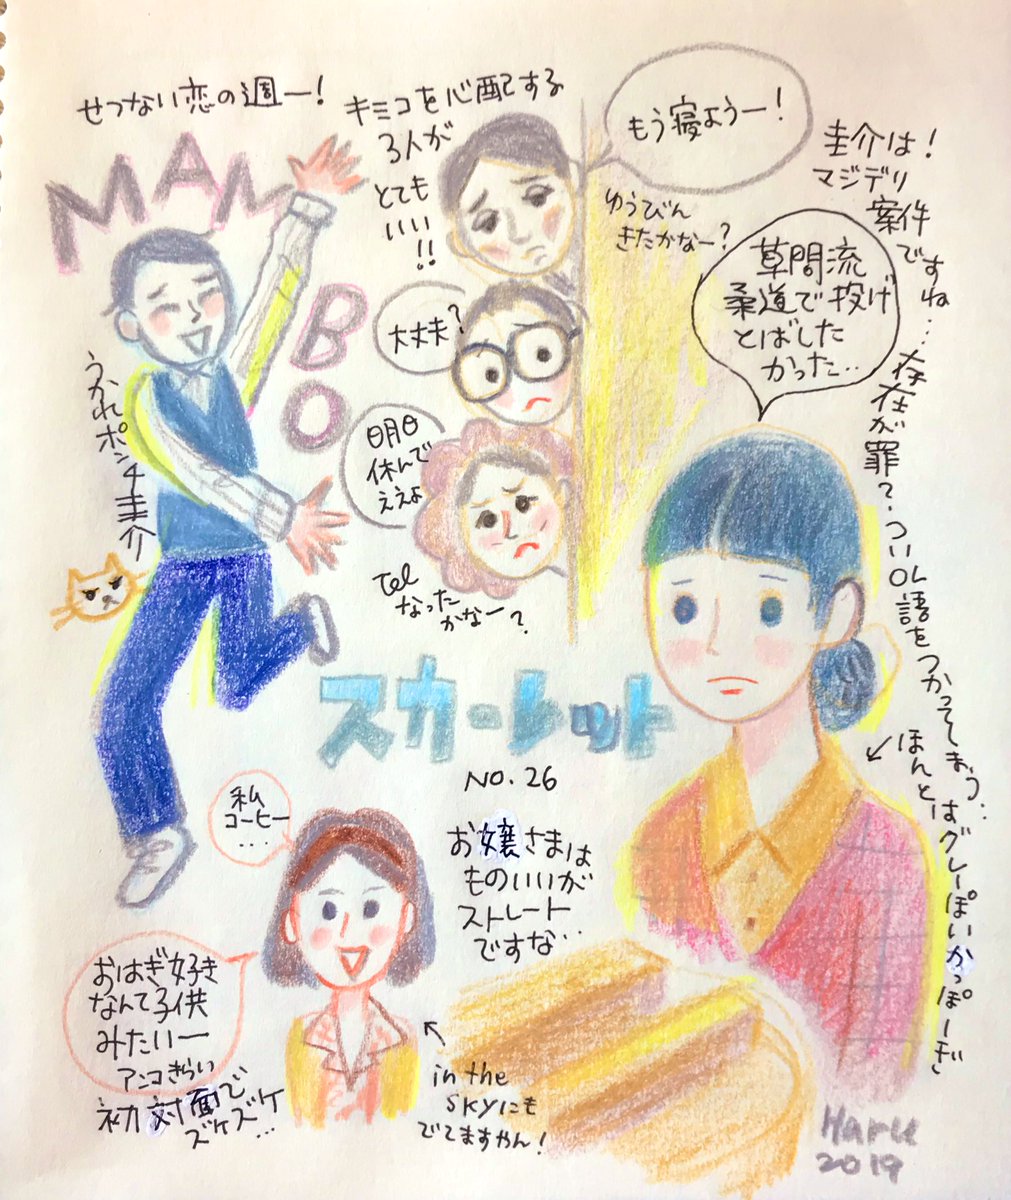 せつない恋の週ー!
MAMBO
うかれポンチ圭介
キミコを心配する
3人が
とても
いい!!
もう寝ようー!
ゆうびん
きたかなー?
大丈夫?
明日
休んで
ええよ
tel
なった
かなー?
圭介は!
マジデリ
案件
ですね…存在が罪?ついOL語をつかってしまう…
草間流
柔道で投げ
とばした
かった…
スカーレット
NO.26
↙ほんとは
グレーぽいかっぽーぎ
私
コーヒー
…
お嬢さまは
ものいいが
ストレート
ですな…
おはぎ好き
なんて子供
みたいー
アンコきらい
初対面で
ズケズケ
…
in the
SKYにも
でてますやん!
Haru
2019